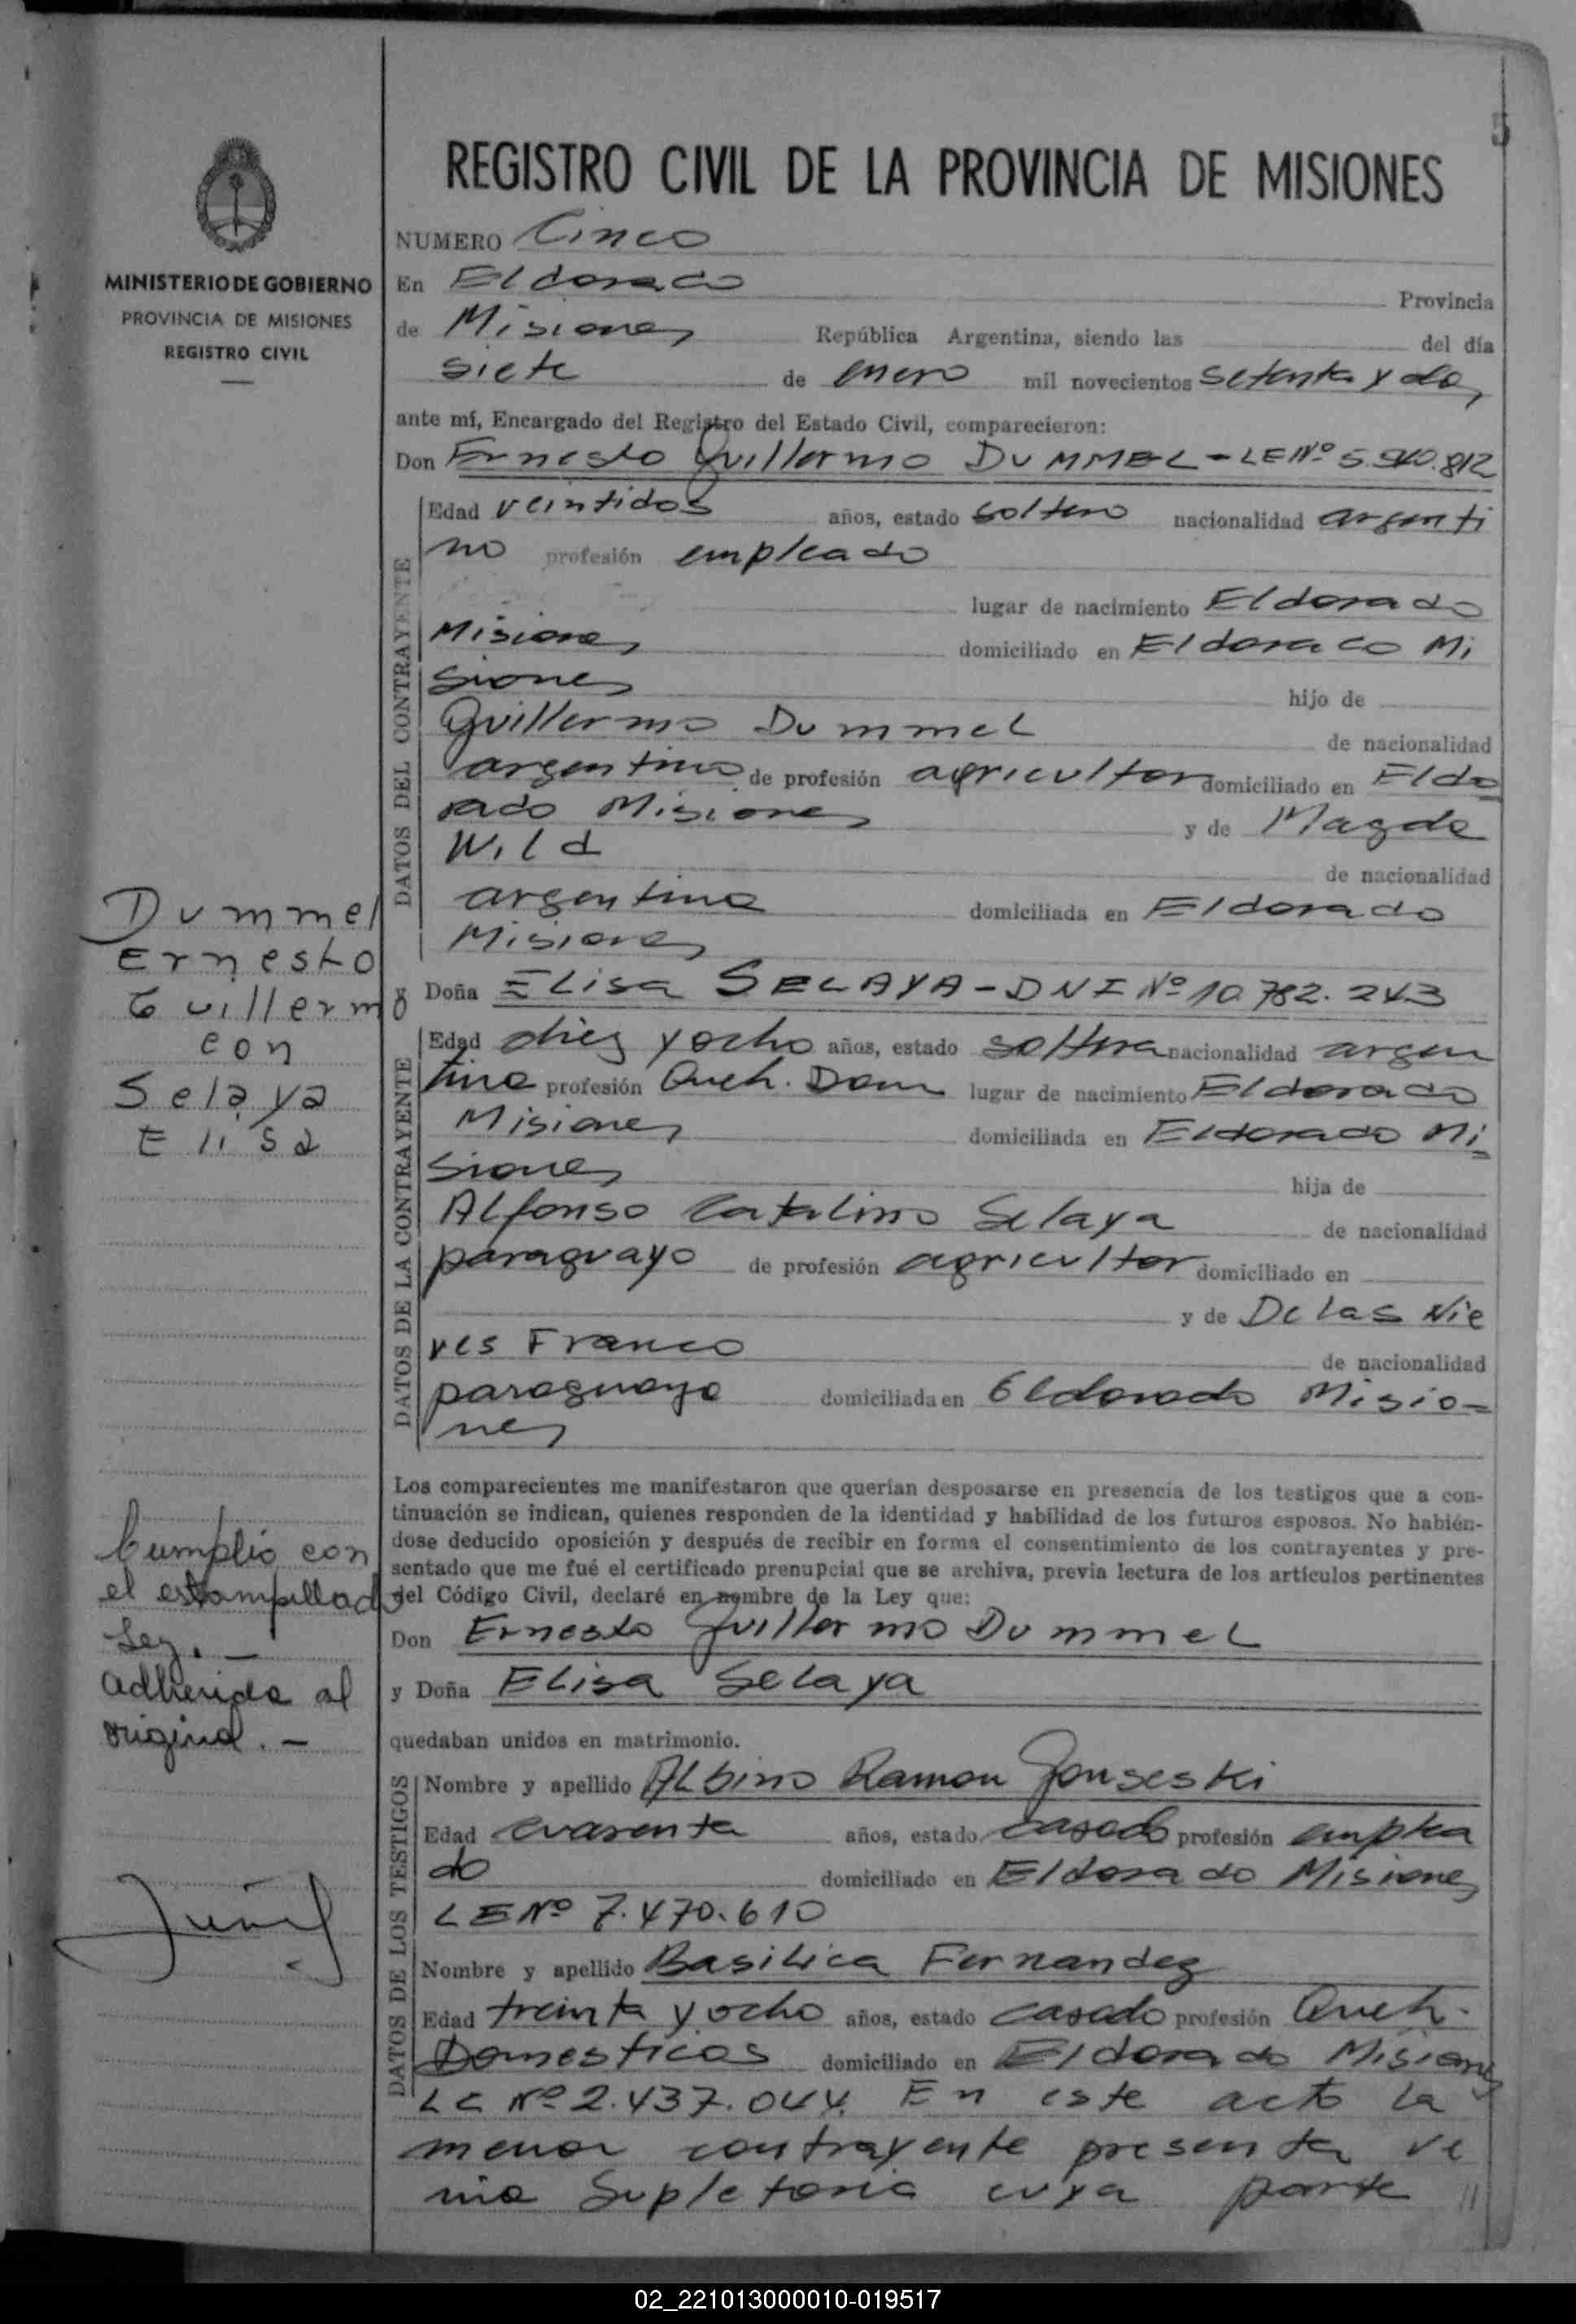 5
REGISTRO CIVIL DE LA PROVINCIA DE MISIONES
MINISTERIO DE GOBIERNO
PROVINCIA DE MISIONES
REGISTRO CIVIL
NUMERO Cinco
En Eldorado Provincia
de Misiones República Argentina, siendo las del día
siete de enero mil novecientos setenta y dos
ante mí, Encargado del Registro del Estado Civil, comparecieron:
Don Ernesto Guillermo DUMMEL - LE Nº 5.940.812
DATOS DEL CONTRAYENTE
Edad veintidos años, estado soltero nacionalidad argenti
no profesión empleado
lugar de nacimiento Eldorado
Misiones domiciliado en Eldorado Mi
siones hijo de
Guillermo Dummel de nacionalidad
argentino de profesión agricultor domiciliado en Eldo
rado Misiones y de Magda
Wild de nacionalidad
argentina domiciliada en Eldorado
Misiones
Dummel
Ernesto
Guillermo
con
Selaya
Elisa
Doña Elisa SELAYA - DNI Nº 10.782.243
DATOS DE LA CONTRAYENTE
Edad diez y ocho años, estado soltera nacionalidad argen
tina profesión Queh. Dom lugar de nacimiento Eldorado
Misiones domiciliada en Eldorado Mi
siones hija de
Alfonso Catalino Selaya de nacionalidad
paraguayo de profesión agricultor domiciliado en
y de De las Nie
ves Franco de nacionalidad
paraguaya domiciliada en Eldorado Misio-
nes
Los comparecientes me manifestaron que querían desposarse en presencia de los testigos que a con-
tinuación se indican, quienes responden de la identidad y habilidad de los futuros esposos. No habién-
dose deducido oposición y después de recibir en forma el consentimiento de los contrayentes y pre-
sentado que me fué el certificado prenupcial que se archiva, previa lectura de los artículos pertinentes
del Código Civil, declaré en nombre de la Ley que:
Don Ernesto Guillermo Dummel
y Doña Elisa Selaya
quedaban unidos en matrimonio.
Cumplió con
el estampillado
Ley. -
adherida al
original. -
DATOS DE LOS TESTIGOS
Nombre y apellido Albino Ramon Gonseski
Edad cuarenta años, estado casado profesión emplea
do domiciliado en Eldorado Misiones
LE Nº 7.470.610
Nombre y apellido Basilica Fernandez
Edad treinta y ocho años, estado casado profesión Queh.
Domesticos domiciliado en Eldorado Misiones
LC Nº 2.437.044. En este acto la
menor contrayente presenta ve
nia Supletoria cuya parte //
02_221013000010-019517